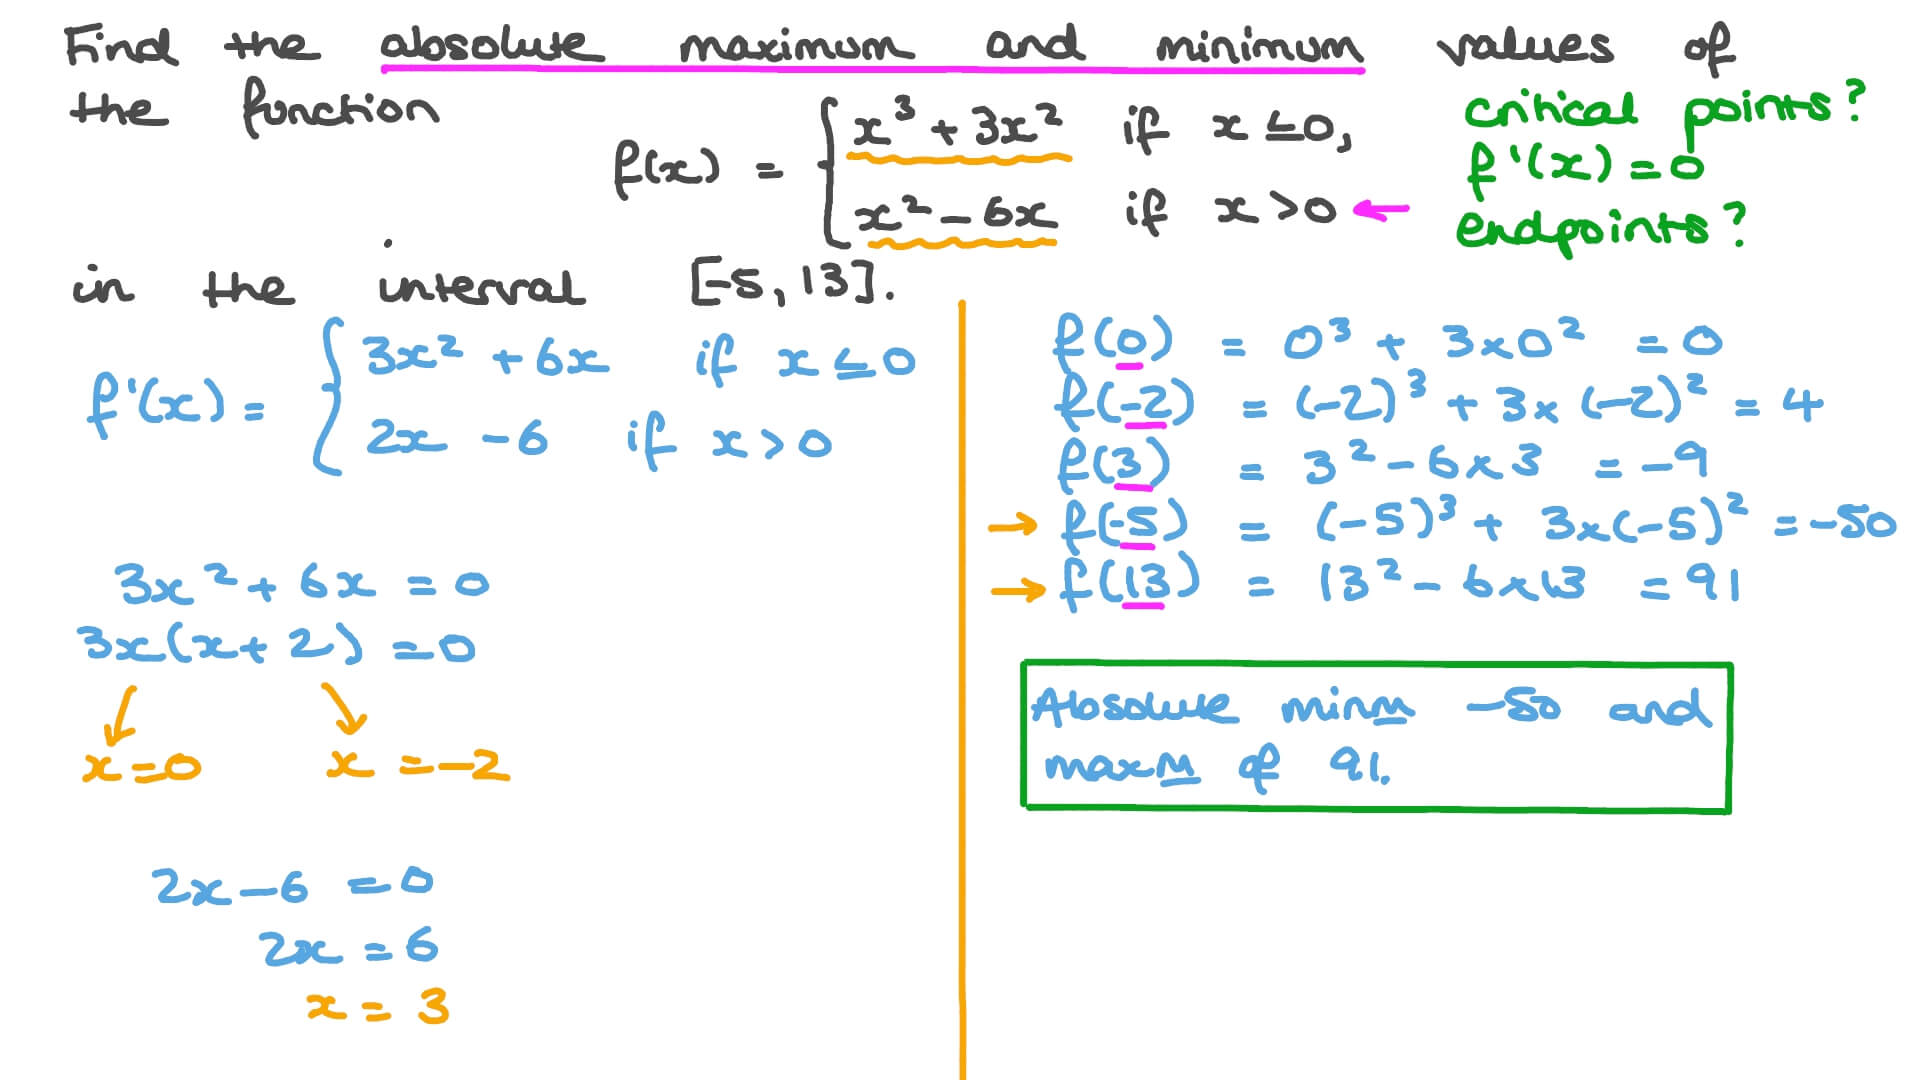 Find the absolute maximum and minimum values of
the function
f(x) = { x³ + 3x² if x ≤ 0,
x² - 6x if x > 0
in the interval [-5, 13].
critical points?
f'(x) = 0
endpoints?
f'(x) = { 3x² + 6x if x ≤ 0
2x - 6 if x > 0
3x² + 6x = 0
3x(x + 2) = 0
x = 0 x = -2
2x - 6 = 0
2x = 6
x = 3
f(0) = 0³ + 3×0² = 0
f(-2) = (-2)³ + 3×(-2)² = 4
f(3) = 3² - 6×3 = -9
→ f(-5) = (-5)³ + 3×(-5)² = -50
→ f(13) = 13² - 6×13 = 91
Absolute minm -50 and
maxm of 91.